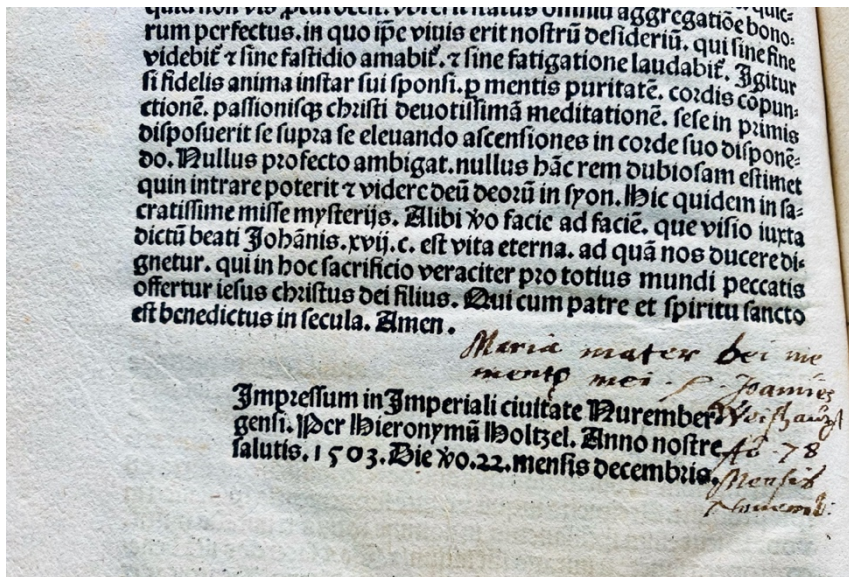 rum perfectus. in quo ip̄e viuis erit nostrū desideriū. qui sine fine
videbit̄ ⁊ sine fastidio amabit̄. ⁊ sine fatigatione laudabit̄. Igitur
si fidelis anima instar sui sponsi. ꝑ mentis puritatē. cordis cōpun⸗
ctionē. passionisqꝫ christi deuotissimā meditationē. sese in primis
disposuerit se supra se eleuando ascensiones in corde suo disponē⸗
do. Nullus profecto ambigat. nullus hāc rem dubiosam estimet
quin intrare poterit ⁊ videre deū deorū in syon. Hic quidem in sa⸗
cratissime misse mysterijs. Alibi v̊o facie ad faciē. que visio iuxta
dictū beati Johānis. xvij. c. est vita eterna. ad quā nos ducere di⸗
gnetur. qui in hoc sacrificio veraciter pro totius mundi peccatis
offertur iesus christus dei filius. Qui cum patre et spiritu sancto
est benedictus in secula. Amen.
Maria mater dei me
mento mei. Joannes
Impressum in Imperiali ciuitate Nurember
gensi. Per Hieronymū Holtzel. Anno nostre Aō 78
salutis. 1503. Die v̊o. 22. mensis decembris. Mensis
Nouemb: